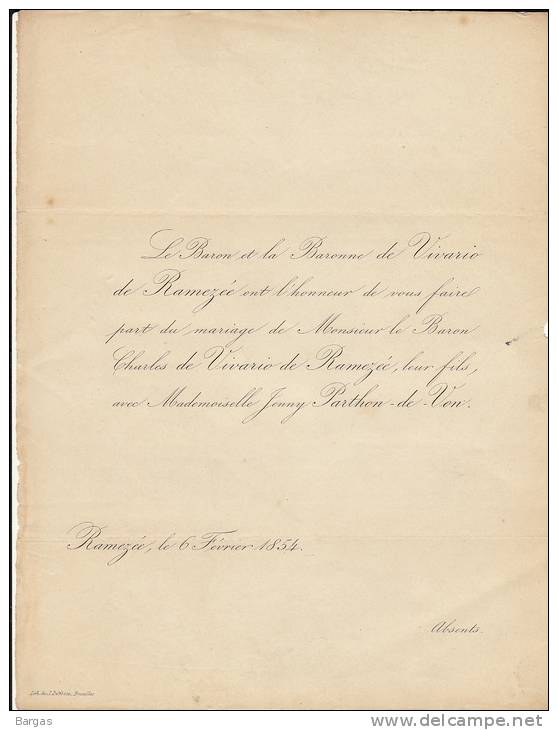 Le Baron et la Baronne de Vivario
de Ramezée ont l'honneur de vous faire
part du mariage de Monsieur le Baron
Charles de Vivario de Ramezée, leur fils,
avec Mademoiselle Jenny Parthon-de-Von.
Ramezée, le 6 Février 1854.
Absents.
Lith. de J. Bruxelles
Bargas
www.delcampe.net